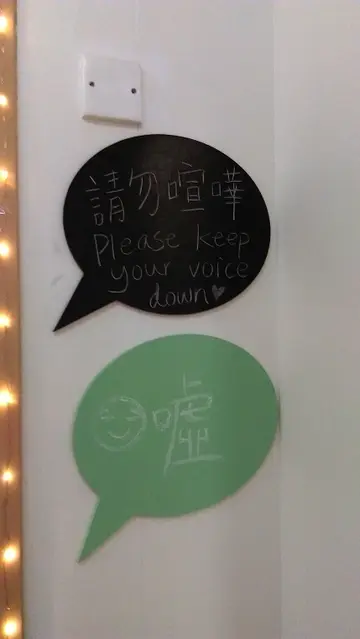 請勿喧嘩
Please keep
your voice
down♥
噓